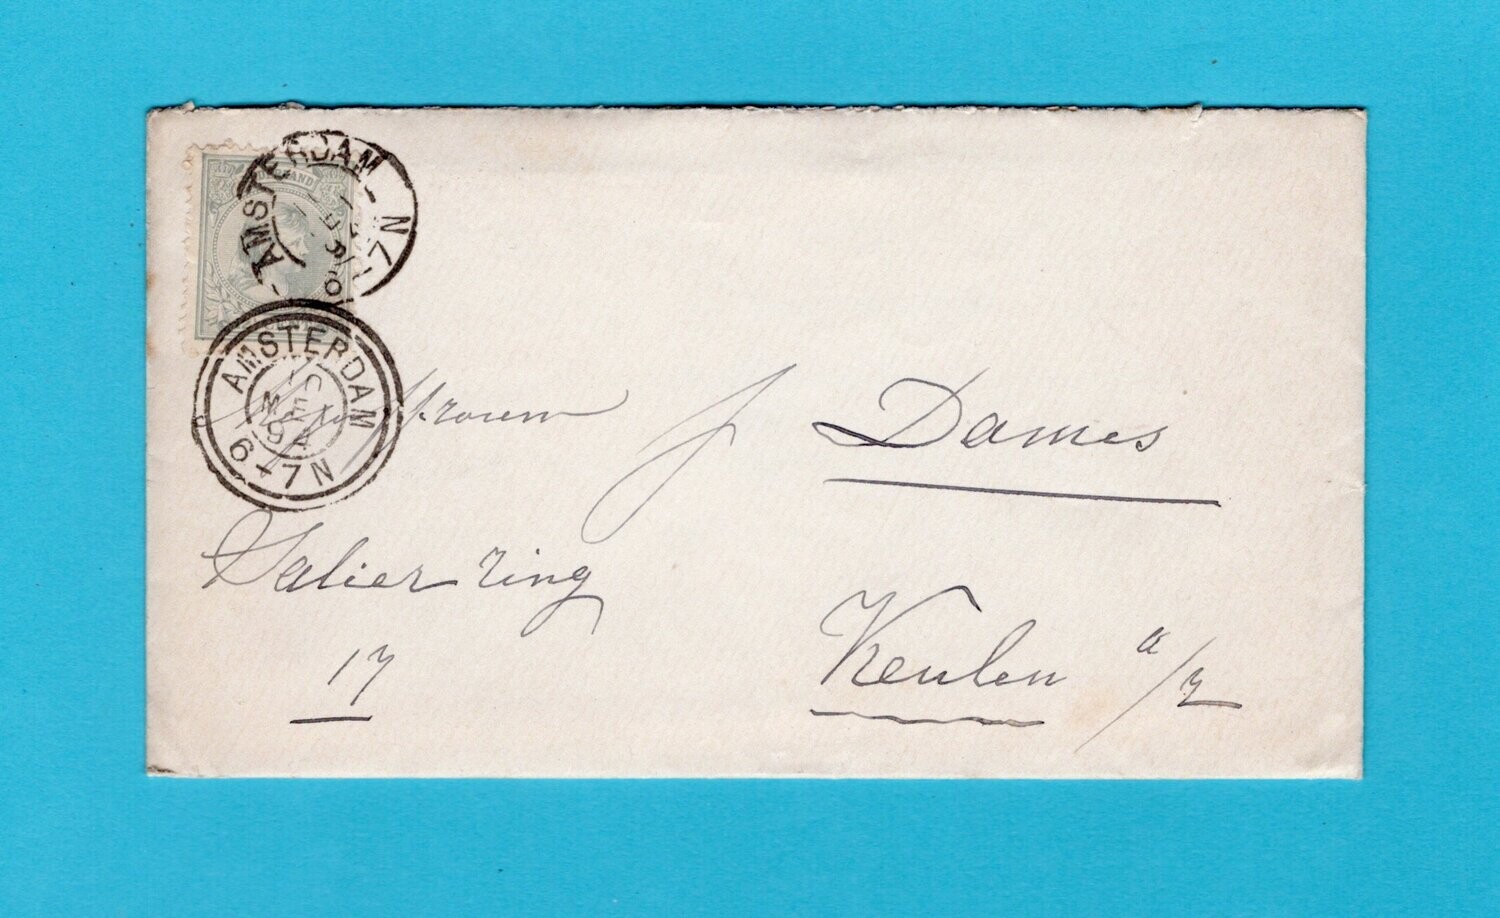 AMSTERDAM
AMSTERDAM
6-7N
Mevrouw J Dames
Salier ring
17
Keulen a/r